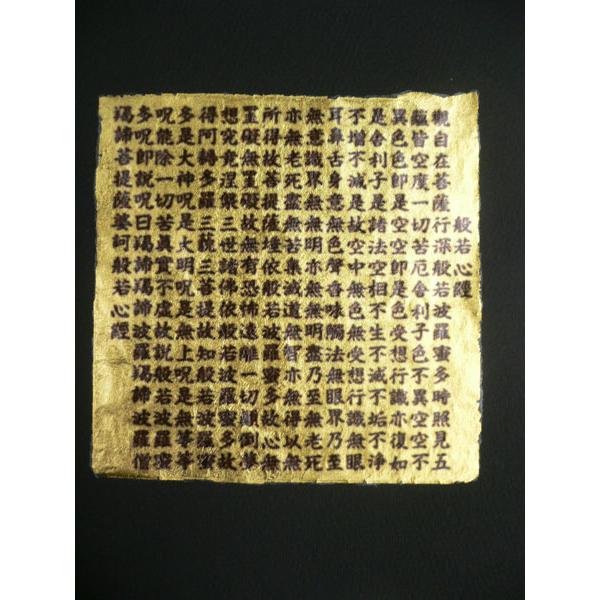 般若心經
觀自在菩薩行深般若波羅蜜多時照見五
蘊皆空度一切苦厄舍利子色不異空空不
異色色即是空空即是色受想行識亦復如
是舍利子是諸法空相不生不滅不垢不淨
不增不減是故空中無色無受想行識無眼
耳鼻舌身意無色聲香味觸法無眼界乃至
無意識界無無明亦無無明盡乃至無老死
亦無老死盡無苦集滅道無智亦無得以無
所得故菩提薩埵依般若波羅蜜多故心無
罣礙無罣礙故無有恐怖遠離一切顛倒夢
想究竟涅槃三世諸佛依般若波羅蜜多故
得阿耨多羅三藐三菩提故知般若波羅蜜
多是大神呪是大明呪是無上呪是無等等
呪能除一切苦眞實不虛故說般若波羅蜜
多呪即說呪曰羯諦羯諦波羅羯諦波羅僧
羯諦菩提薩婆訶般若心經